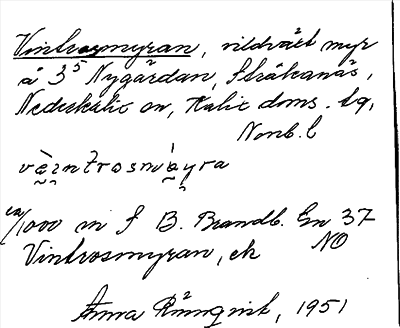 Vintrosmyran, vildväxt myr
å 3⁵ Nygårdan, Stråkanäs,
Nederkalix sn, Kalix doms. tg,
Nonb. l
vä̀i̯ntrosmỳra
ca/1000 m S B. Brandb. En 37
Vintrosmyran, ek NO
Anna Rönnqvist, 1951